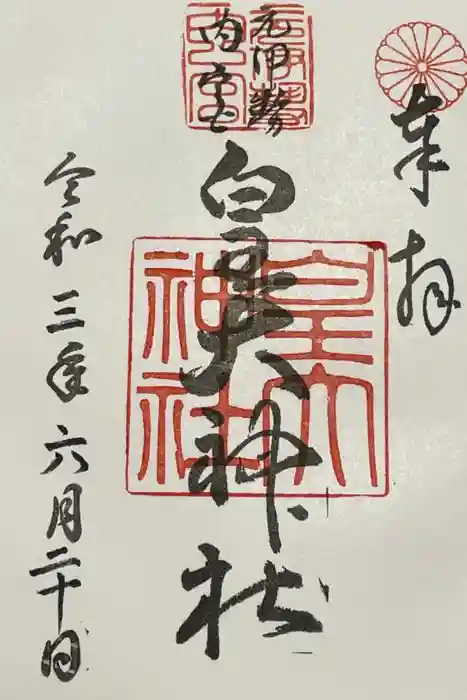 奉拝
元伊勢
内宮
皇大神社
皇大
神社
令和三年六月二十日